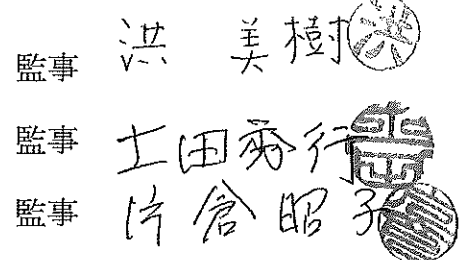 監事 洪 美樹
監事 土田秀行
監事 片倉昭子